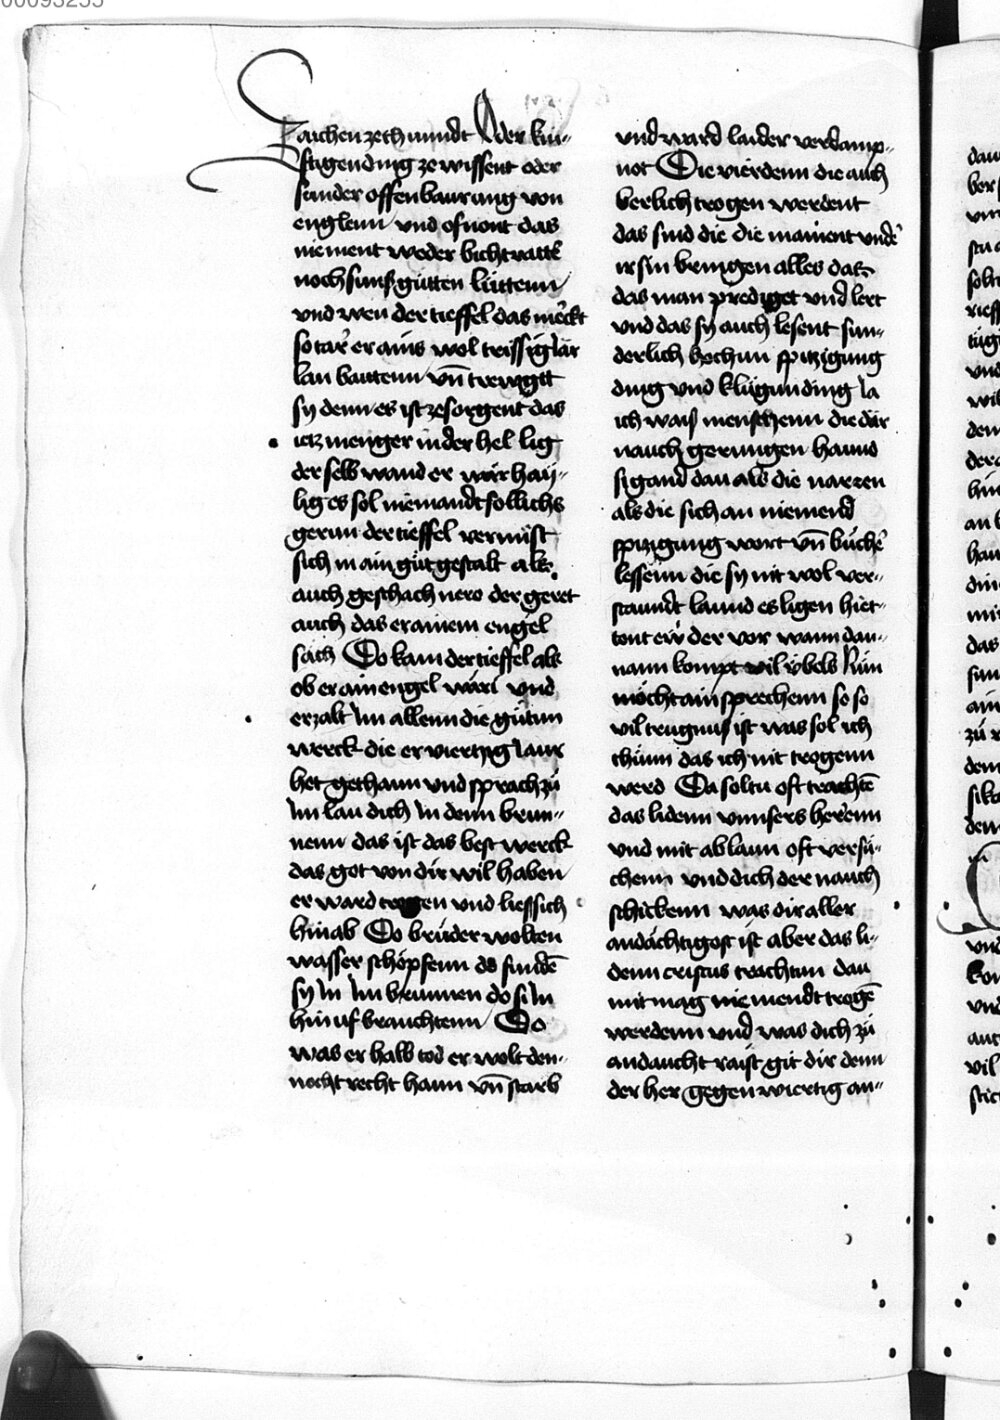 00093255
zaichen ze thuindt Oder kün-
ftigen ding ze wissent oder
sunder offenbaurung von
englenn und ofnont das
niement weder bichtvatte
noch sunst gůtten lüttenn
und wen der tieffel das merckt
so tar er ains wol trissig Jar
lan bautenn vn̄ trewgtt
sy denn es ist ze sorgent das
ietz menger in der hel lig
der selb wand er wär hay-
lig es sol niemandt sollichs
gerun der tieffel vermist
sich in ain gůt gestalt als
auch geschach nero der geret
auch das er ainem engel
säch Do kam der tieffel als
ob er ain engel wäri und
erzalt Jm allenn die gůtun
werck die er viertzig Jaur
het gethann und sprach zů
Jm lau dich Jn denn brun-
nenn das ist das best werck
das got von dir wil haben
er ward trogen und lies sich
hinab Do brůder wolten
wasser schöpfenn do fundē
sy Jn Jm brunnen do si Jn
hin uf brauchtenn Do
was er halb tod er wolt den-
nocht recht hann vn̄ starb
und ward laider verdamp-
not Die vierdenn die auch
berlich trogen werdent
das sind die die mainent unde
ir sin bringen alles das
das man prediget und lert
und das sy auch lesent sun-
derlich hochun spitzigung
ding und klůgun ding Ja
ich waiß menschenn die dar
nauch gerungen hannd
sigand dan als die narren
als die sich an niemend
spitzigung wort vn̄ bücher
lessenn die sy nit wol ver-
staundt launnd es ligen hiet-
tont ew der vor wann dan-
nann kompt vil übels Nun
möcht ain sprechenn so so
vil trugnus ist was sol ich
thůnn das ich nit trogenn
werd Da soltu oft trachtē
das lidenn vnnsers herrenn
und mit ablaun oft versů-
chenn und dich der nauch
schickenn was dir aller
andächtigost ist aber das li-
denn cristus trachtun dan
mit mag niemendt trogē
werdenn und was dich zů
andaucht raist git dir denn
der her gegenwiertig an-